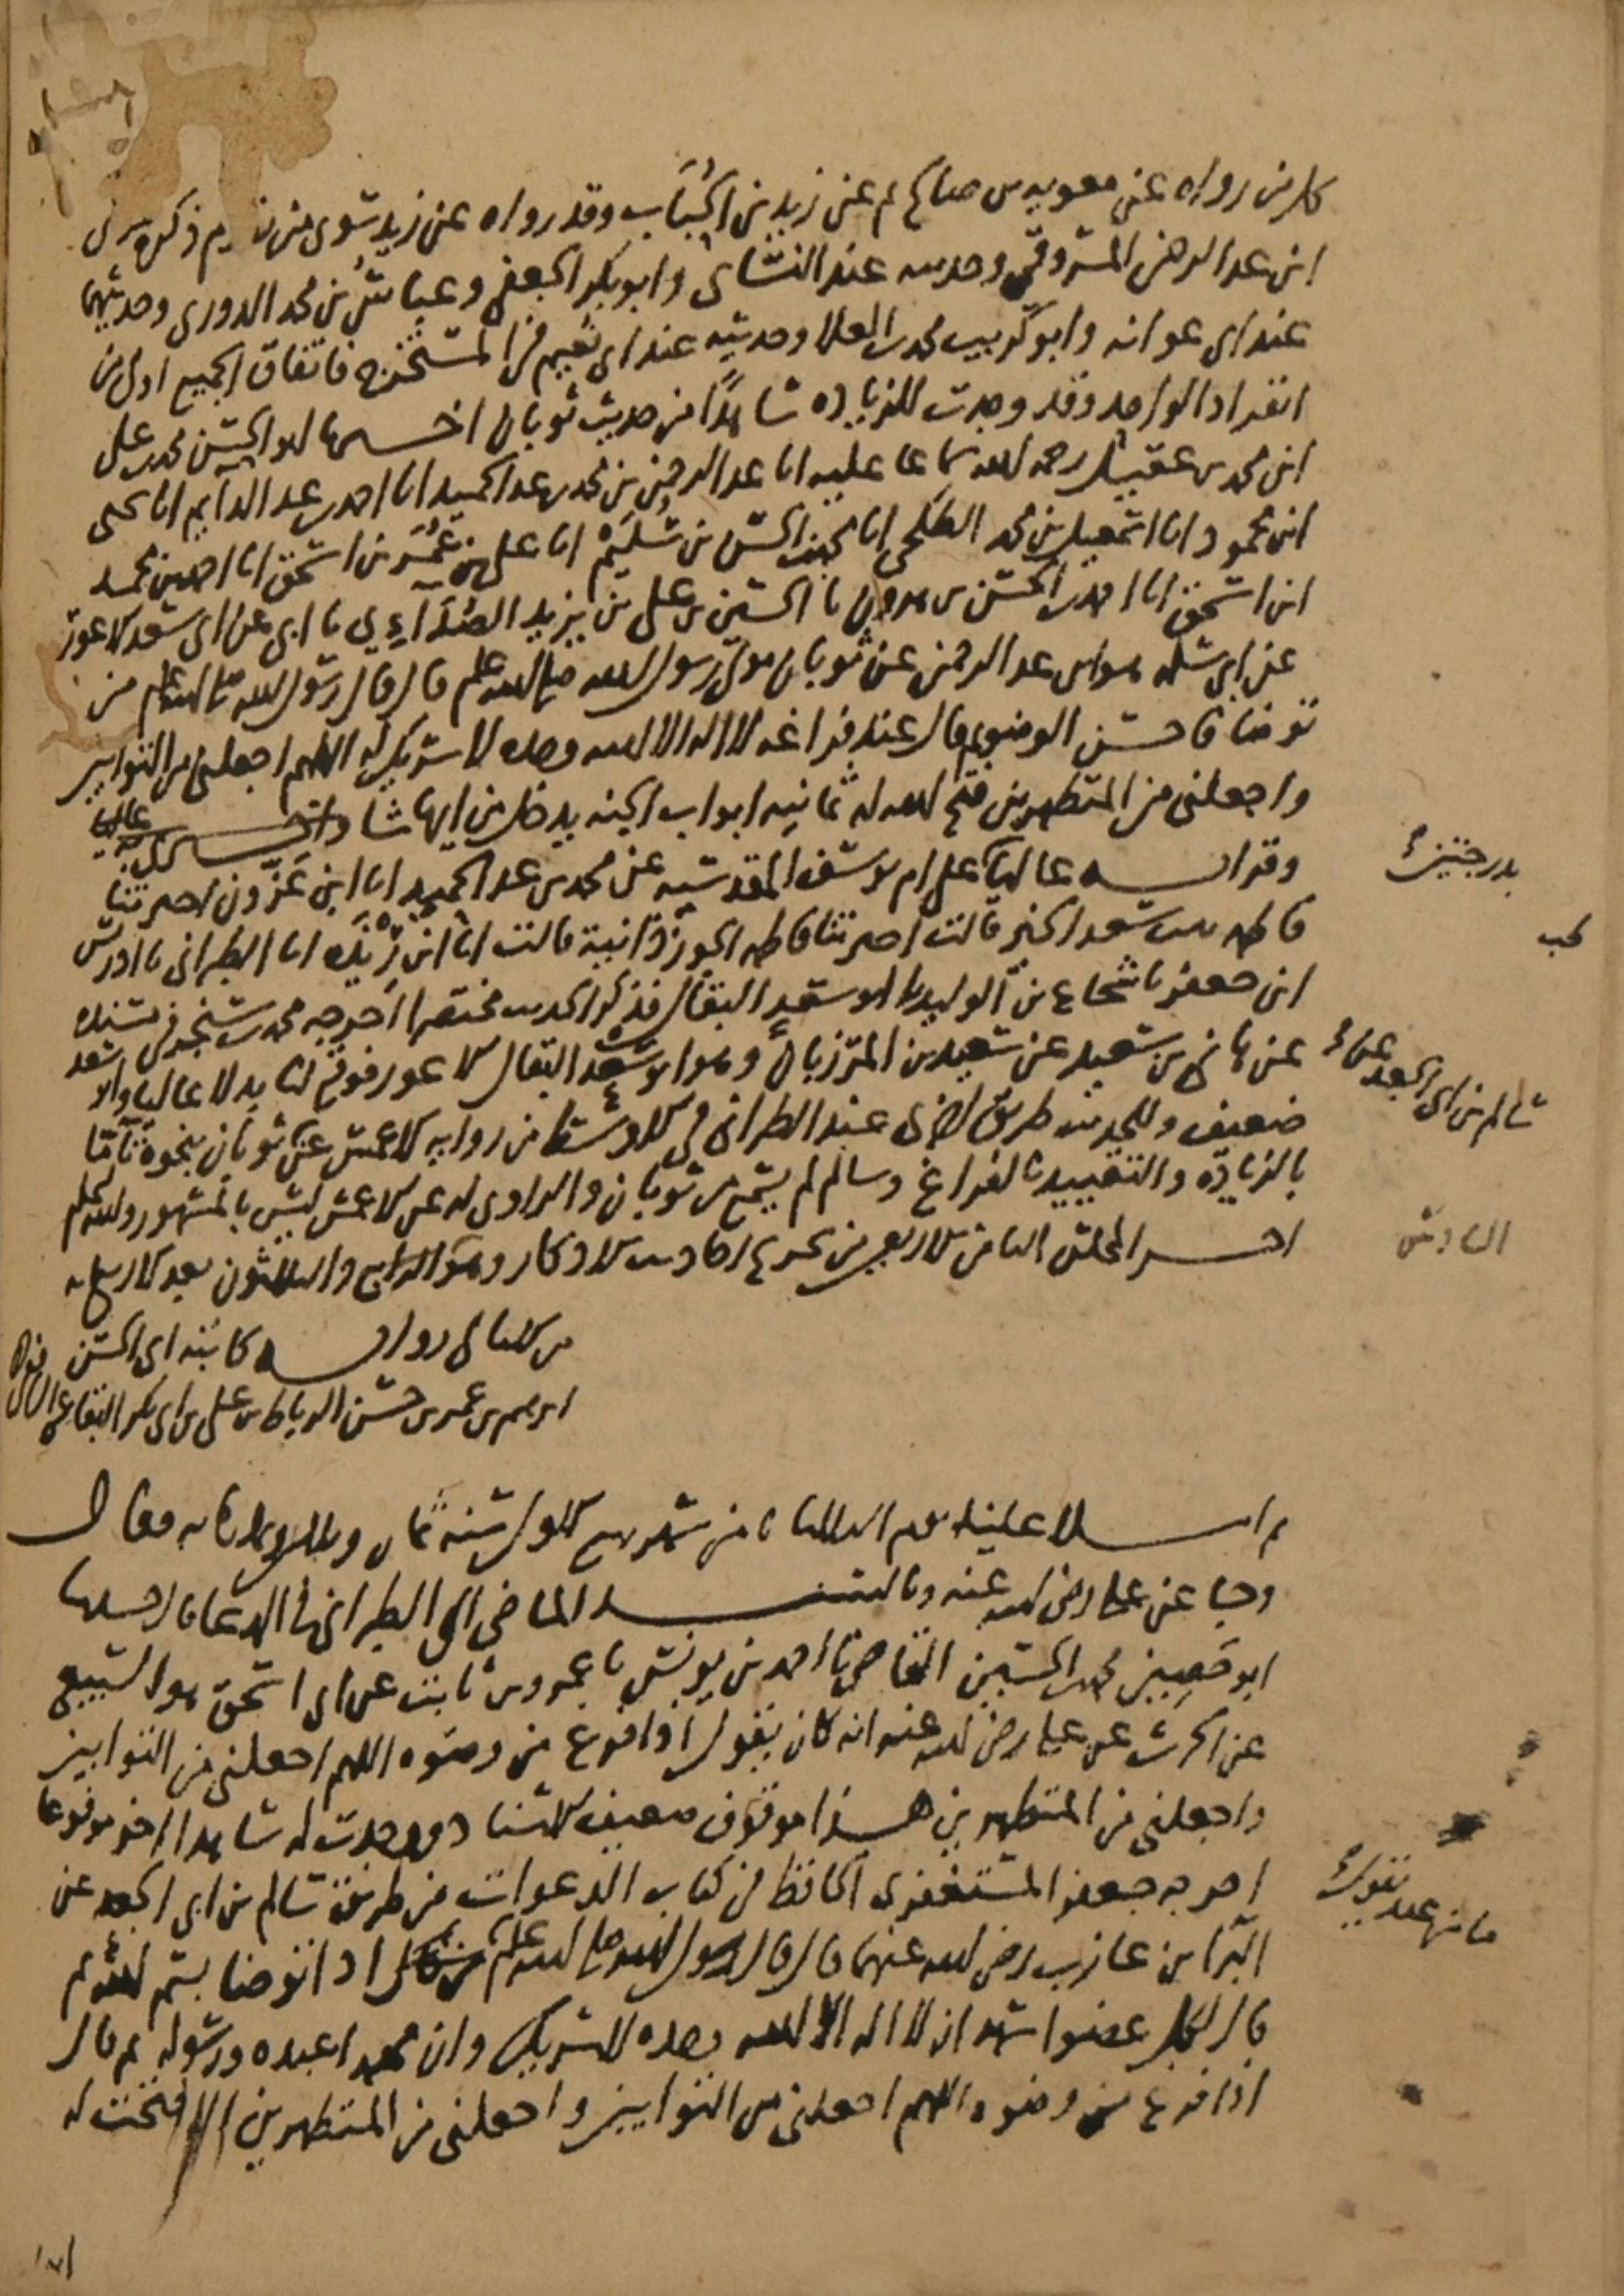 كل من رواه عن معوية بن صالح ثم عن زيد بن الحباب وقد رواه عن زيد سوى من تقدم ذكره موسى
ابن عبد الرحمن المسروقي وحديثه عند النسائي وابو بكر الجعفي وعباس بن محمد الدوري وحديثهما
عند ابي عوانه وابو كريب محمد بن العلا وحديثه عند ابي نعيم في المستخرج فاتفاق الجميع اولى من
انفراد الواحد وقد وجدت للزيادة شاهدًا من حديث ثوبان اخبرنا ابو الحسن محمد بن علي
ابن محمد بن عقيل رحمه الله سماعا عليه انا عبد الرحمن بن محمد بن عبد الحميد انا احمد بن عبد الدايم انا يحيى
ابن محمود انا اسمعيل بن محمد الطلحي انا الحسن بن سُليم انا علي بن عُمر بن اسحق انا احمد بن محمد
ابن اسحق انا احمد بن الحسن بن هرون نا الحسين بن علي بن يزيد الصُدَآءِي نا ابي عن ابي سعد الاعور
عن ابي سلمه هو ابن عبد الرحمن عن ثوبان مولى رسول الله صلى الله عليه وسلم قال قال رسول الله صلى الله عليه وسلم من
توضا فاحسن الوضوء ثم قال عند فراغه لا اله الا الله وحده لا شريك له اللهم اجعلني من التوابين
واجعلني من المتطهرين فتح الله له ثمانية ابواب الجنه يدخل من ايها شا
وقرات عاليًا على ام يوسف المقدسيه عن محمد بن عبد الحميد انا ابن عَزّون اخبرتنا
فاطمه بنت سعد الخير قالت اخبرتنا فاطمه الجوزذانية قالت انا ابن رِيْذَه انا الطبراني نا ادريس
ابن جعفر نا شجاع بن الوليد نا ابو سعد البقال فذكر الحديث مختصرا اخرجه محمد بن سنجر في مسنده
عن هانئ بن سعيد عن سعيد بن المرزبان وهو ابو سعد البقال الاعور فوقع لنا بدلا عاليا وابو سعد
ضعيف وللحديث طريق اخرى عند الطبراني في الاوسط من رواية الاعمش عن ثوبان بنحوه تامًا
بالزيادة والتقييد بالفراغ وسالم لم يسمع من ثوبان والراوي له عن الاعمش ليس بالمشهور والله اعلم
اخر المجلس الثامن الاربعين من تخريج احاديث الاذكار وهو الرابع والثلاثون بعد الاربعمايه
من الامالي رواية كاتبه ابي الحسن
ابرهيم بن عمر بن حسن الرباط بن علي بن ابي بكر البقاعي
ثم املا علينا يوم الثلاثا من شهر ربيع الاول سنه ثمان وثلاثين وثمانمايه فقال
وجا عن علي رضي الله عنه وبالسند الماضي الى الطبراني في الدعا قال حدثنا
ابو حَصِين محمد بن الحسين القاضي نا احمد بن يونس نا عمرو بن ثابت عن ابي اسحق هو السبيعي
عن الحرث عن علي رضي الله عنه انه كان يقول اذا فرغ من وضوه اللهم اجعلني من التوابين
واجعلني من المتطهرين هذا موقوف ضعيف الاسناد ووجدت له شاهدا اخر مرفوعا
اخرجه جعفر المستغفري الحافظ في كتاب الدعوات من طريق سالم بن ابي الجعد عن
البرآ بن عازب رضي الله عنهما قال قال رسول الله صلى الله عليه وسلم اذا توضا بسم الله ثم
قال لكل عضو اشهد ان لا اله الا الله وحده لا شريك له وان محمدا عبده ورسوله ثم قال
اذا فرغ من وضوه اللهم اجعلني من التوابين واجعلني من المتطهرين الا فتحت له
بدرجتين
سالم بن ابي الجعد عن
السادس
ما من عبد يقول